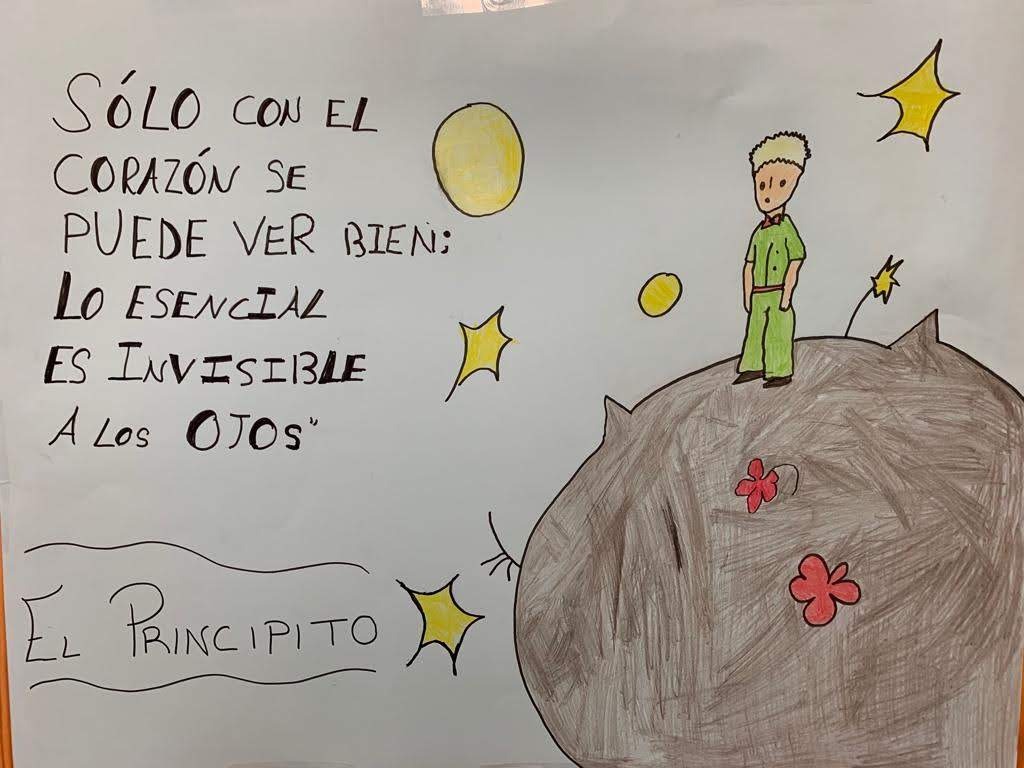 SÓLO CON EL
CORAZÓN SE
PUEDE VER BIEN;
LO ESENCIAL
ES INVISIBLE
A LOS OJOS"
EL PRINCIPITO